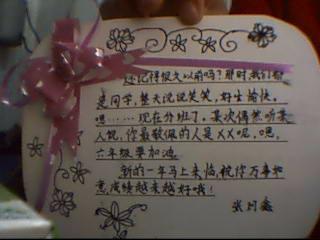 还记得很久以前吗？那时，我们都
是同学，整天说说笑笑，好生愉快。
嗯……现在分班了，某次偶然听某
人说，你最敬佩的人是XX呢，嗯，
六年级要加油。
新的一年马上来临，祝你万事如
意，成绩越来越好哦！
张月鑫